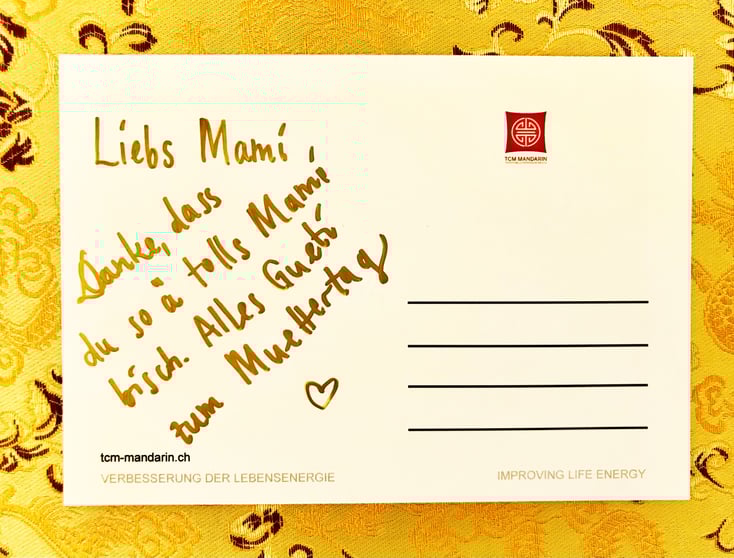 Liebs Mami
Danke, dass
du so ä tolls Mami
bisch. Alles Gueti
zum Muettertag
TCM MANDARIN
tcm-mandarin.ch
VERBESSERUNG DER LEBENSENERGIE
IMPROVING LIFE ENERGY